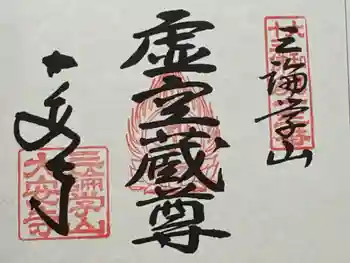 三論学山
虚空蔵尊
大安寺
三論学山
大安寺